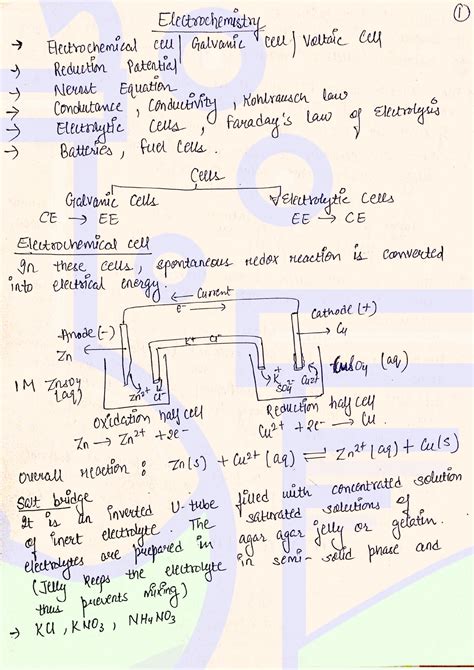 Electrochemistry
①
→ Electrochemical cell / Galvanic cell / Voltaic Cell
→ Reduction Potential
→ Nernst Equation
→ Conductance, Conductivity, Kohlrausch law
→ Electrolytic Cells, Faraday's Law of Electrolysis
→ Batteries, Fuel Cells.
Cells
Galvanic Cells Electrolytic Cells
CE → EE EE → CE
Electrochemical cell
In these cells, spontaneous redox reaction is converted
into electrical energy.
← Current
e⁻ →
Anode (-) Cathode (+)
Zn Cu
K+ Cl⁻
1M ZnSO4 (aq) Zn2+ Cl⁻ K+ SO4²⁻ Cu2+ CuSO4 (aq)
Oxidation half cell Reduction half cell
Zn → Zn2+ + 2e- Cu2+ + 2e- → Cu.
Overall reaction : Zn(s) + Cu2+ (aq) ⇌ Zn2+ (aq) + Cu(s)
Salt bridge
It is an inverted U-tube filled with concentrated solution
of inert electrolyte. The saturated solutions of
electrolytes are prepared in agar agar jelly or gelatin.
(Jelly keeps the electrolyte in semi-solid phase and
thus prevents mixing)
→ KCl, KNO3, NH4NO3